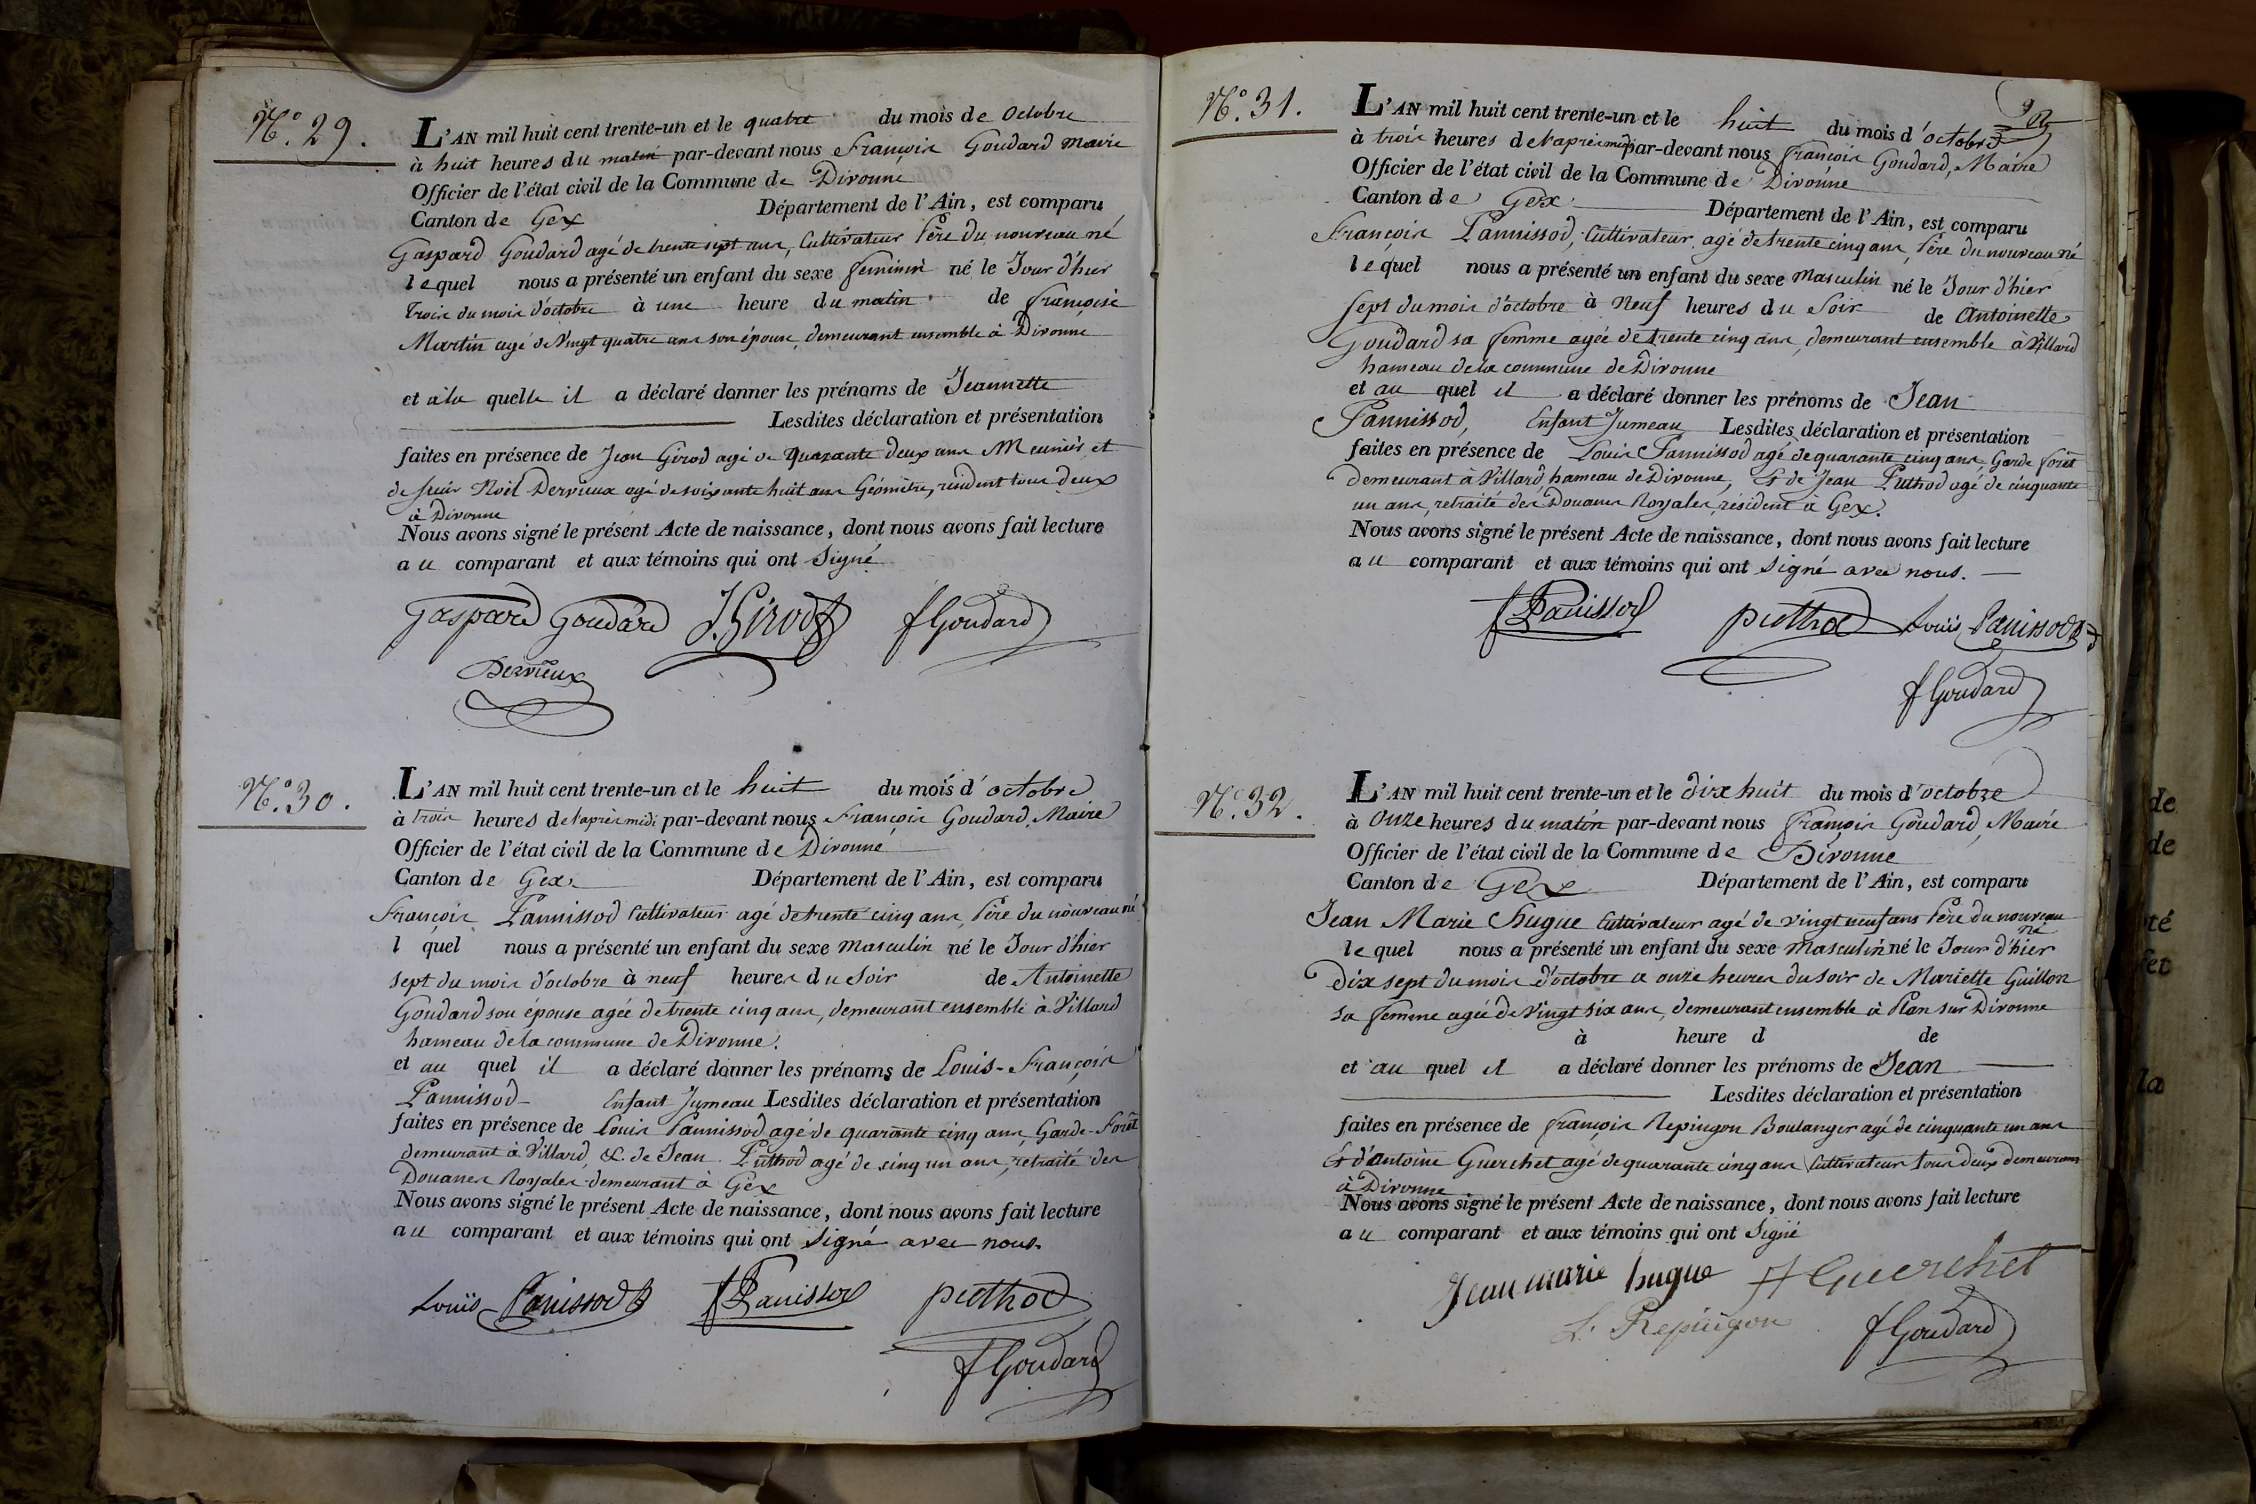 N.° 29.
L'AN mil huit cent trente-un et le quatre du mois de Octobre
à huit heures du matin par-devant nous François Goudard maire
Officier de l'état civil de la Commune de Divonne
Canton de Gex Département de l'Ain, est comparu
Gaspard Goudard agé de trente sept ans, Cultivateur Père du nouveau né
lequel nous a présenté un enfant du sexe feminin né le Jour d'hier
Trois du mois d'octobre à une heure du matin de françoise
Martin agé de Vingt quatre ans son épouse, demeurant ensemble à Divonne
et à la quelle il a déclaré donner les prénoms de Jeannette
Lesdites déclaration et présentation
faites en présence de Jean Girod agé de quarante deux ans Meunier, et
de sieur Noël Dervieux agé de soixante huit ans Géomètre, résident tous deux
à Divonne
Nous avons signé le présent Acte de naissance, dont nous avons fait lecture
au comparant et aux témoins qui ont Signé
Gaspard Goudard J. Girod fGoudard
Dervieux
N.° 30.
L'AN mil huit cent trente-un et le huit du mois d'octobre
à trois heures de l'après midi par-devant nous François Goudard, Maire
Officier de l'état civil de la Commune de Divonne
Canton de Gex Département de l'Ain, est comparu
François Pannissod Cultivateur agé de trente cinq ans, Père du nouveau né
l quel nous a présenté un enfant du sexe masculin né le Jour d'hier
sept du mois d'octobre à neuf heures du Soir de Antoinette
Goudard son épouse agée de trente cinq ans, demeurant ensemble à Villard
hameau de la commune de Divonne.
et au quel il a déclaré donner les prénoms de Louis-François
Pannissod Enfant Jumeau Lesdites déclaration et présentation
faites en présence de Louis Pannissod agé de quarante cinq ans, Garde-Forêt
demeurant à Villard, &. de Jean Puthod agé de cinq un ans, retraité des
Douanes Royales demeurant à Gex
Nous avons signé le présent Acte de naissance, dont nous avons fait lecture
au comparant et aux témoins qui ont signé avec nous.
Louis Panissod fPanissod puthod
fGoudard
N.° 31.
L'AN mil huit cent trente-un et le huit du mois d'octobre
à trois heures de l'après midi par-devant nous François Goudard, Maire
Officier de l'état civil de la Commune de Divonne
Canton de Gex Département de l'Ain, est comparu
François Pannissod, Cultivateur, agé de trente cinq ans, Père du nouveau né
lequel nous a présenté un enfant du sexe Masculin né le Jour d'hier
sept du mois d'octobre à Neuf heures du Soir de Antoinette
Goudard sa femme agée de trente cinq ans, demeurant ensemble à Villard
hameau de la commune de Divonne
et au quel il a déclaré donner les prénoms de Jean
Pannissod, Enfant Jumeau Lesdites déclaration et présentation
faites en présence de Louis Pannissod agé de quarante cinq ans, Garde forêt
demeurant à Villard, hameau de Divonne, Et de Jean Puthod agé de cinquante
un ans, retraité des Douanes Royales, résident à Gex.
Nous avons signé le présent Acte de naissance, dont nous avons fait lecture
au comparant et aux témoins qui ont signé avec nous.
fPanissod puthod Louis Panissod
fGoudard
N.° 32.
L'AN mil huit cent trente-un et le dix huit du mois d'octobre
à Onze heures du matin par-devant nous François Goudard, Maire
Officier de l'état civil de la Commune de Divonne
Canton de Gex Département de l'Ain, est comparu
Jean Marie Hugue Cultivateur agé de vingt neuf ans Père du nouveau
né
lequel nous a présenté un enfant du sexe Masculin né le Jour d'hier
Dix sept du mois d'octobre a onze heures du soir de Mariette Guillon
sa femme agée de Vingt six ans, demeurant ensemble à Plan sur Divonne
à heure d de
et au quel il a déclaré donner les prénoms de Jean
Lesdites déclaration et présentation
faites en présence de François Repingon Boulanger agé de cinquante un ans
Et d'Antoine Guerchet agé de quarante cinq ans Cultivateur tous deux demeurans
à Divonne
Nous avons signé le présent Acte de naissance, dont nous avons fait lecture
au comparant et aux témoins qui ont Signé
Jean marie hugue A Guerchet
Repingon fGoudard
de
de
la